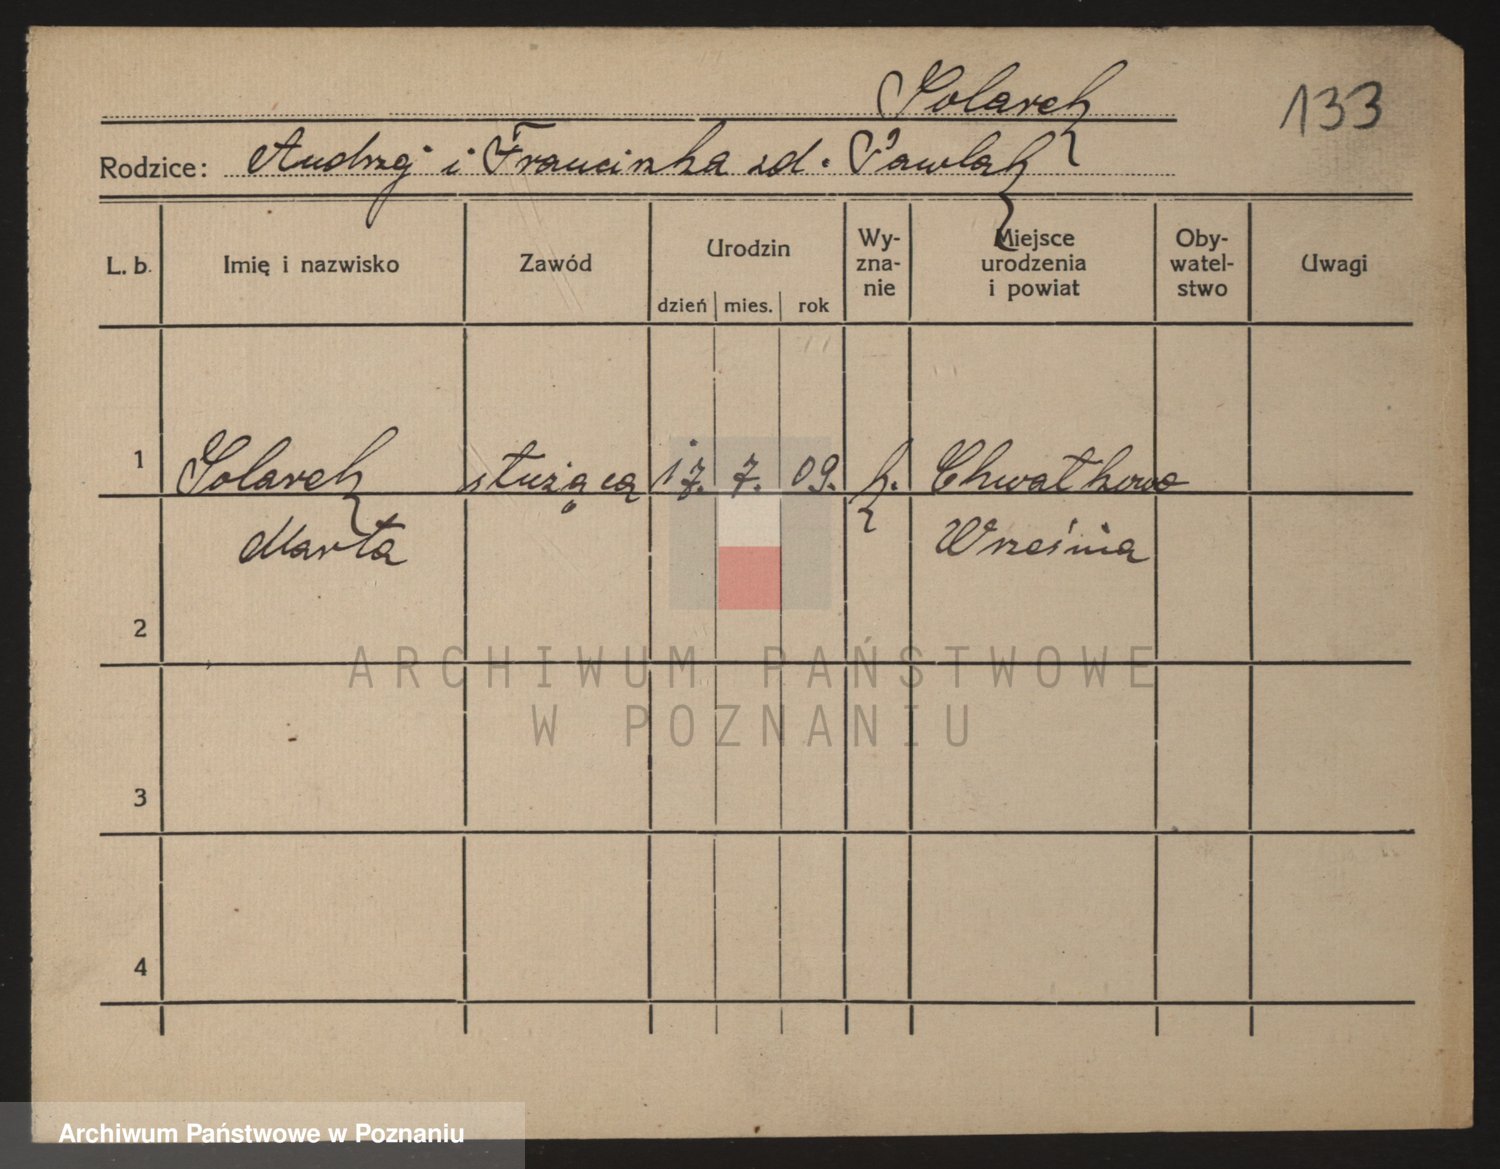 Solarek
133
Rodzice: Andrzej i Franciszka zd. Pawlak
L. b. Imię i nazwisko Zawód Urodzin dzień mies. rok Wy-zna-nie Miejsce urodzenia i powiat Oby-watel-stwo Uwagi
1 Solarek służąca 17. 7. 09. k. Chwałkowo
Marta Września
2
ARCHIWUM PAŃSTWOWE
W POZNANIU
3
4
Archiwum Państwowe w Poznaniu